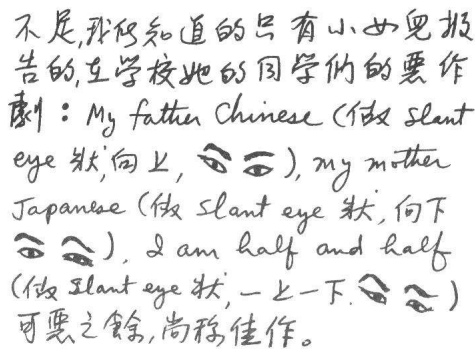 不足,我所知道的只有小女兒報
告的,在學校她的同學們的惡作
劇：My father Chinese (做 slant
eye 狀,向上, ), my mother
Japanese (做 slant eye 狀,向下
), I am half and half
(做 slant eye 狀,一上一下, )
可惡之餘,尚称佳作。